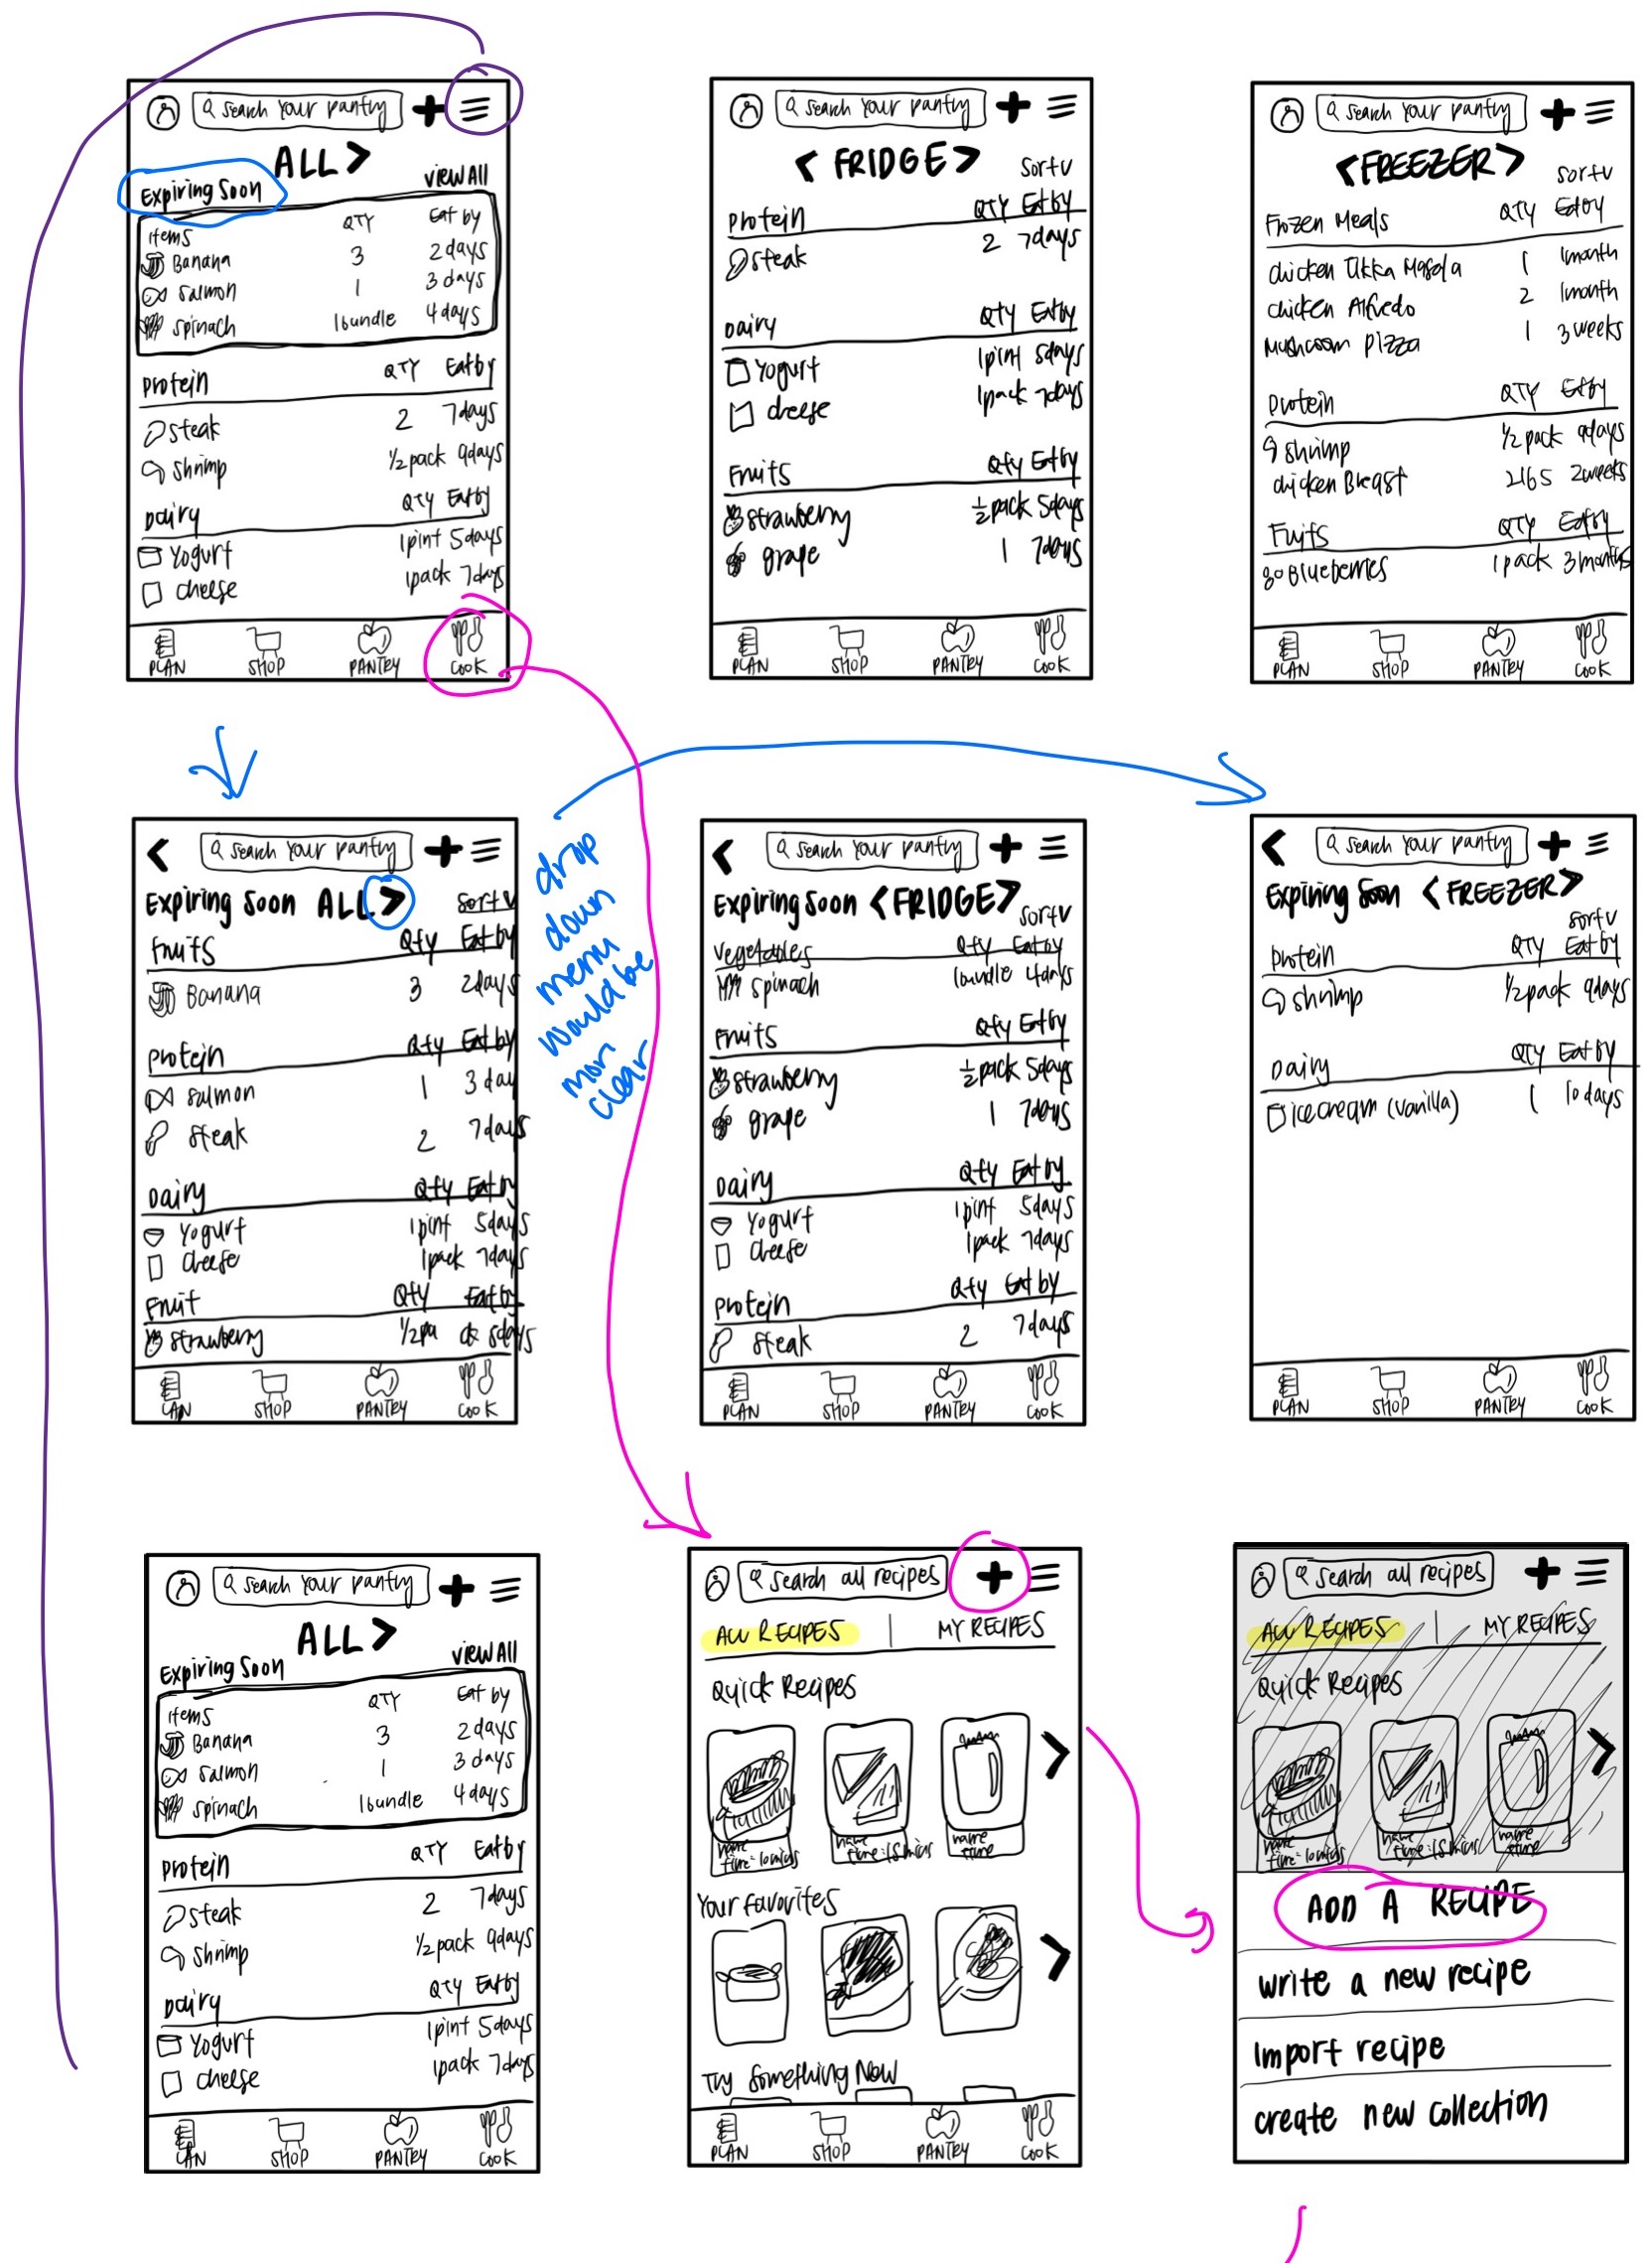 Search Your Pantry
ALL >
Expiring Soon
View All
Items QTY Eat by
Banana 3 2 days
Salmon 1 3 days
Spinach 1 bundle 4 days
Protein QTY Eat by
Steak 2 7 days
Shrimp 1/2 pack 9 days
Dairy QTY Eat by
Yogurt 1 pint 5 days
Cheese 1 pack 7 days
PLAN SHOP PANTRY COOK
Search Your Pantry
< FRIDGE >
Sort v
Protein QTY Eat by
Steak 2 7 days
Dairy QTY Eat by
Yogurt 1 pint 5 days
Cheese 1 pack 7 days
Fruits Qty Eat by
Strawberry 1/2 pack 5 days
grape 1 7 days
PLAN SHOP PANTRY COOK
Search Your Pantry
<FREEZER>
Sort v
Frozen Meals QTY Eat by
Chicken Tikka Masala 1 1 month
Chicken Alfredo 2 1 month
Mushroom Pizza 1 3 weeks
Protein QTY Eat by
Shrimp 1/2 pack 9 days
Chicken Breast 2 lbs 2 weeks
Fruits QTY Eat by
Blueberries 1 pack 3 months
PLAN SHOP PANTRY COOK
<
Search Your Pantry
Expiring Soon ALL >
Sort v
Fruits Qty Eat by
Banana 3 2 days
Protein Qty Eat by
Salmon 1 3 day
Steak 2 7 days
Dairy Qty Eat by
Yogurt 1 pint 5 days
Cheese 1 pack 7 days
Fruit Qty Eat by
Strawberry 1/2 pa ck 5 days
SHOP PANTRY COOK
drop
down
menu
would be
mor
clear
<
Search Your Pantry
Expiring Soon <FRIDGE>
Sort v
Vegetables Qty Eat by
Spinach 1 bundle 4 days
Fruits Qty Eat by
Strawberry 1/2 pack 5 days
grape 1 7 days
Dairy Qty Eat by
Yogurt 1 pint 5 days
Cheese 1 pack 7 days
Protein Qty Eat by
Steak 2 7 days
PLAN SHOP PANTRY COOK
<
Search Your Pantry
Expiring Soon <FREEZER>
Sort v
Protein QTY Eat by
Shrimp 1/2 pack 9 days
Dairy QTY Eat by
ice cream (Vanilla) 1 10 days
PLAN SHOP PANTRY COOK
Search Your Pantry
ALL >
Expiring Soon
View All
Items QTY Eat by
Banana 3 2 days
Salmon 1 3 days
Spinach 1 bundle 4 days
Protein QTY Eat by
Steak 2 7 days
Shrimp 1/2 pack 9 days
Dairy QTY Eat by
Yogurt 1 pint 5 days
Cheese 1 pack 7 days
SHOP PANTRY COOK
Search all recipes
ALL RECIPES | MY RECIPES
Quick Recipes
name name name
time = 10 mins time = 15 mins time
>
Your favorites
>
Try Something New
PLAN SHOP PANTRY COOK
Search all recipes
ALL RECIPES | MY RECIPES
Quick Recipes
name name name
time = 10 mins time = 15 mins time
>
ADD A RECIPE
write a new recipe
Import recipe
create new collection